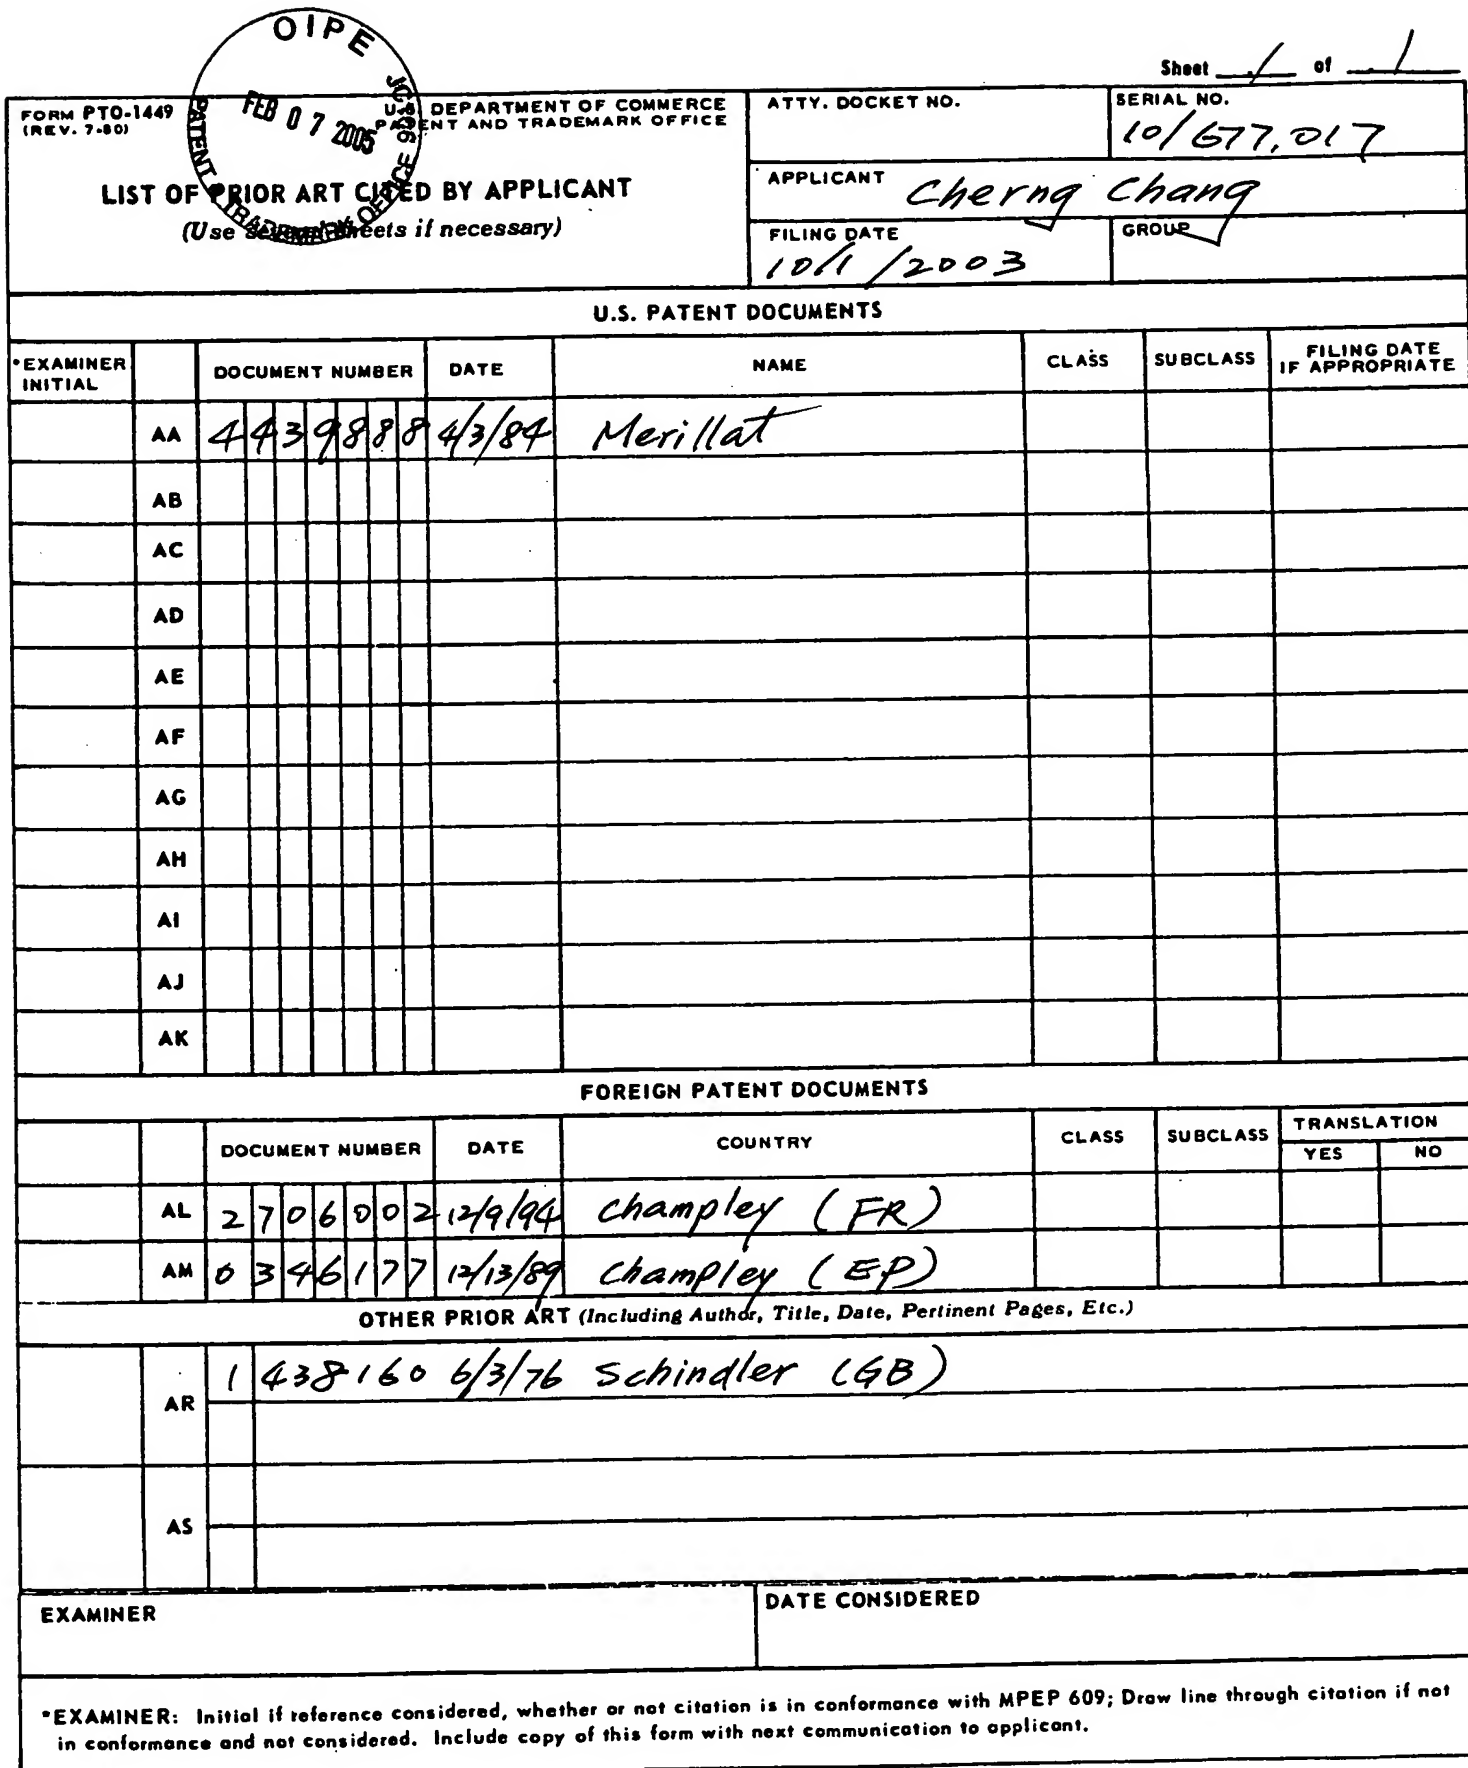 OIPE
JC106
FEB 07 2005
PATENT & TRADEMARK OFFICE
Sheet 1 of 1
FORM PTO-1449
(REV. 7-80)
U.S. DEPARTMENT OF COMMERCE
PATENT AND TRADEMARK OFFICE
LIST OF PRIOR ART CITED BY APPLICANT
(Use several sheets if necessary)
ATTY. DOCKET NO.
SERIAL NO.
10/677,017
APPLICANT Cherng Chang
FILING DATE
10/1/2003
GROUP
U.S. PATENT DOCUMENTS
*EXAMINER INITIAL DOCUMENT NUMBER DATE NAME CLASS SUBCLASS FILING DATE IF APPROPRIATE
AA 4439888 4/3/84 Merillat
AB
AC
AD
AE
AF
AG
AH
AI
AJ
AK
FOREIGN PATENT DOCUMENTS
DOCUMENT NUMBER DATE COUNTRY CLASS SUBCLASS TRANSLATION
YES NO
AL 2706002 12/9/94 Champley (FR)
AM 0346177 12/13/89 Champley (EP)
OTHER PRIOR ART (Including Author, Title, Date, Pertinent Pages, Etc.)
AR 1438160 6/3/76 Schindler (GB)
AS
EXAMINER
DATE CONSIDERED
*EXAMINER: Initial if reference considered, whether or not citation is in conformance with MPEP 609; Draw line through citation if not
in conformance and not considered. Include copy of this form with next communication to applicant.